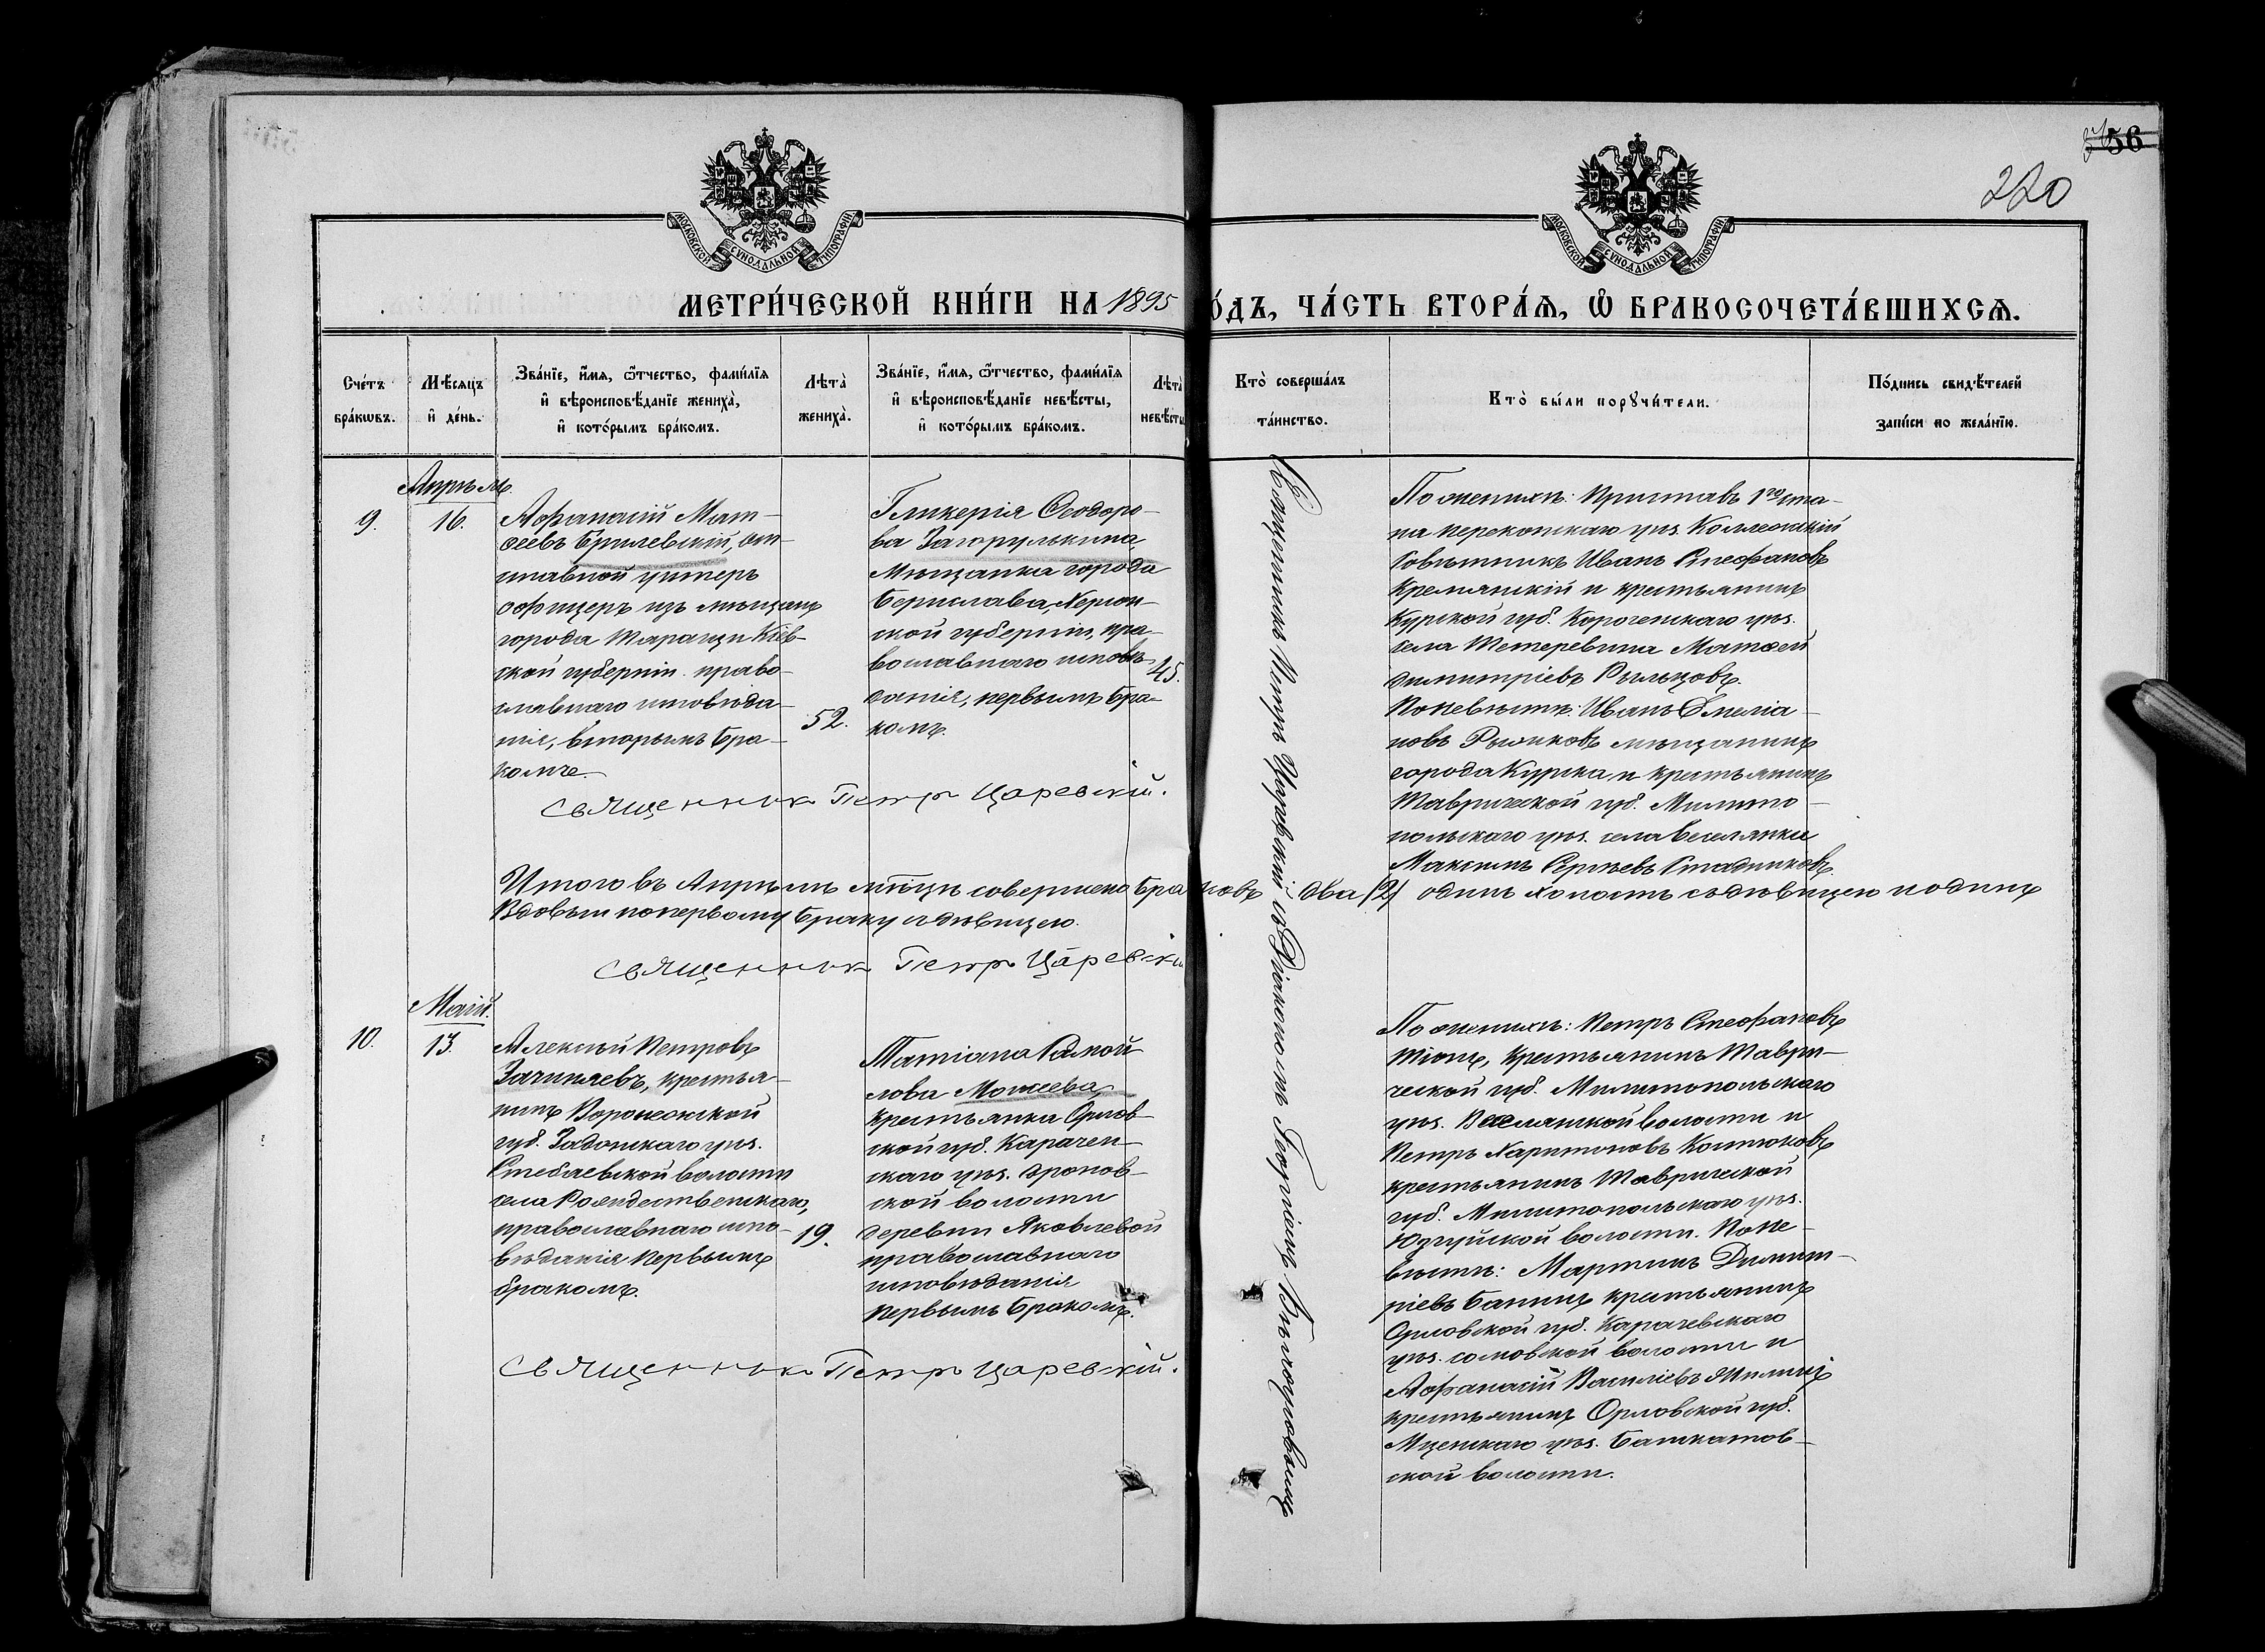 56
220
МОСКОВСКОЙ СѴНОДАЛЬНОЙ ТИПОГРАФІИ
МОСКОВСКОЙ СѴНОДАЛЬНОЙ ТИПОГРАФІИ
МЕТРИ́ЧЕСКОЙ КНИ́ГИ НА 1895
О́ДЪ, ЧА́СТЬ ВТОРА́Ѧ, Ѡ҆ БРАКОСОЧЕТА́ВШИХСѦ.
Сче́тъ бра́кѡвъ.
Мѣ́сяцъ и҆ де́нь.
Зва́нїе, и҆́мя, ѻ҆́тчество, фами́лїя
и҆ вѣроисповѣ́данїе жениха̀,
и҆ кото́рымъ бра́комъ.
Лѣта̀ жениха̀.
Зва́нїе, и҆́мя, ѻ҆́тчество, фами́лїя
и҆ вѣроисповѣ́данїе невѣ́сты,
и҆ кото́рымъ бра́комъ.
Лѣта̀ невѣ́сты
Кто̀ соверша́лъ
та́инство.
Кто̀ бы́ли порꙋчи́тели.
По́дпись свидѣ́телей
за́писи по жела́нїю.
Апрѣль.
9.
16.
Афанасій Мат-
ѳеевъ Брилевскій, от-
ставной унтеръ
офицеръ изъ мѣщанъ
города Таращи Кіев-
ской губерніи право-
славнаго исповѣда-
нія, вторымъ бра-
комъ.
52.
Гликерія Ѳеодоро-
ва Загорулькина
мѣщанка города
Берислава, Херсон-
ской губерніи, пра-
вославнаго исповѣ-
данія, первымъ бра-
комъ.
45.
Священникъ Петръ Царевскій.
Священникъ Петръ Царевскій съ Діакономъ Георгіемъ
По женихѣ: Приставъ 1го ста-
на Перекопскаго уѣз. Коллежскій
Совѣтникъ Иванъ Стефановъ
Кремянскій и крестьянинъ
Курской губ. Корочанскаго уѣз.
села Тетеревина Матѳей
Димитріевъ Рыльцовъ.
По невѣстѣ: Иванъ Емеліа-
новъ Рыжковъ мѣщанинъ
города Курска и крестьянинъ
Таврической губ. Мелито-
польскаго уѣз. села Веселянки
Максимъ Сергѣевъ Стадниковъ.
Итого въ Апрѣлѣ мѣсяцѣ совершено браковъ два (2) одинъ холостъ съ дѣвицею и одинъ
Вдовый по первому браку съ дѣвицею.
Священникъ Петръ Царевскій
Маій.
10.
13.
Алексѣй Петровъ
Зачиняевъ, крестья-
нинъ Воронежской
губ. Задонскаго уѣз.
Стебаевской волости
села Рождественскаго,
православнаго испо-
вѣданія первымъ
бракомъ.
19.
Татіана Самой-
лова Моисеева
крестьянка Орлов-
ской губ. Карачев-
скаго уѣз. Дроновской
волости
деревни Яковлевой
православнаго
исповѣданія
первымъ бракомъ.
Священникъ Петръ Царевскій.
По женихѣ: Петръ Стефановъ
крестьянинъ Таври-
ческой губ. Мелитопольскаго
уѣз. Веселянской волости и
Петръ Харитоновъ Костюковъ
крестьянинъ Таврической
губ. Мелитопольскаго уѣз.
Юзкуйской волости. По не-
вѣстѣ: Мартинъ Димит-
ріевъ Банинъ крестьянинъ
Орловской губ. Карачевскаго
уѣз. волости и
Афанасій Василіевъ
крестьянинъ Орловской губ.
Мценскаго уѣз. Башкатов-
ской волости.